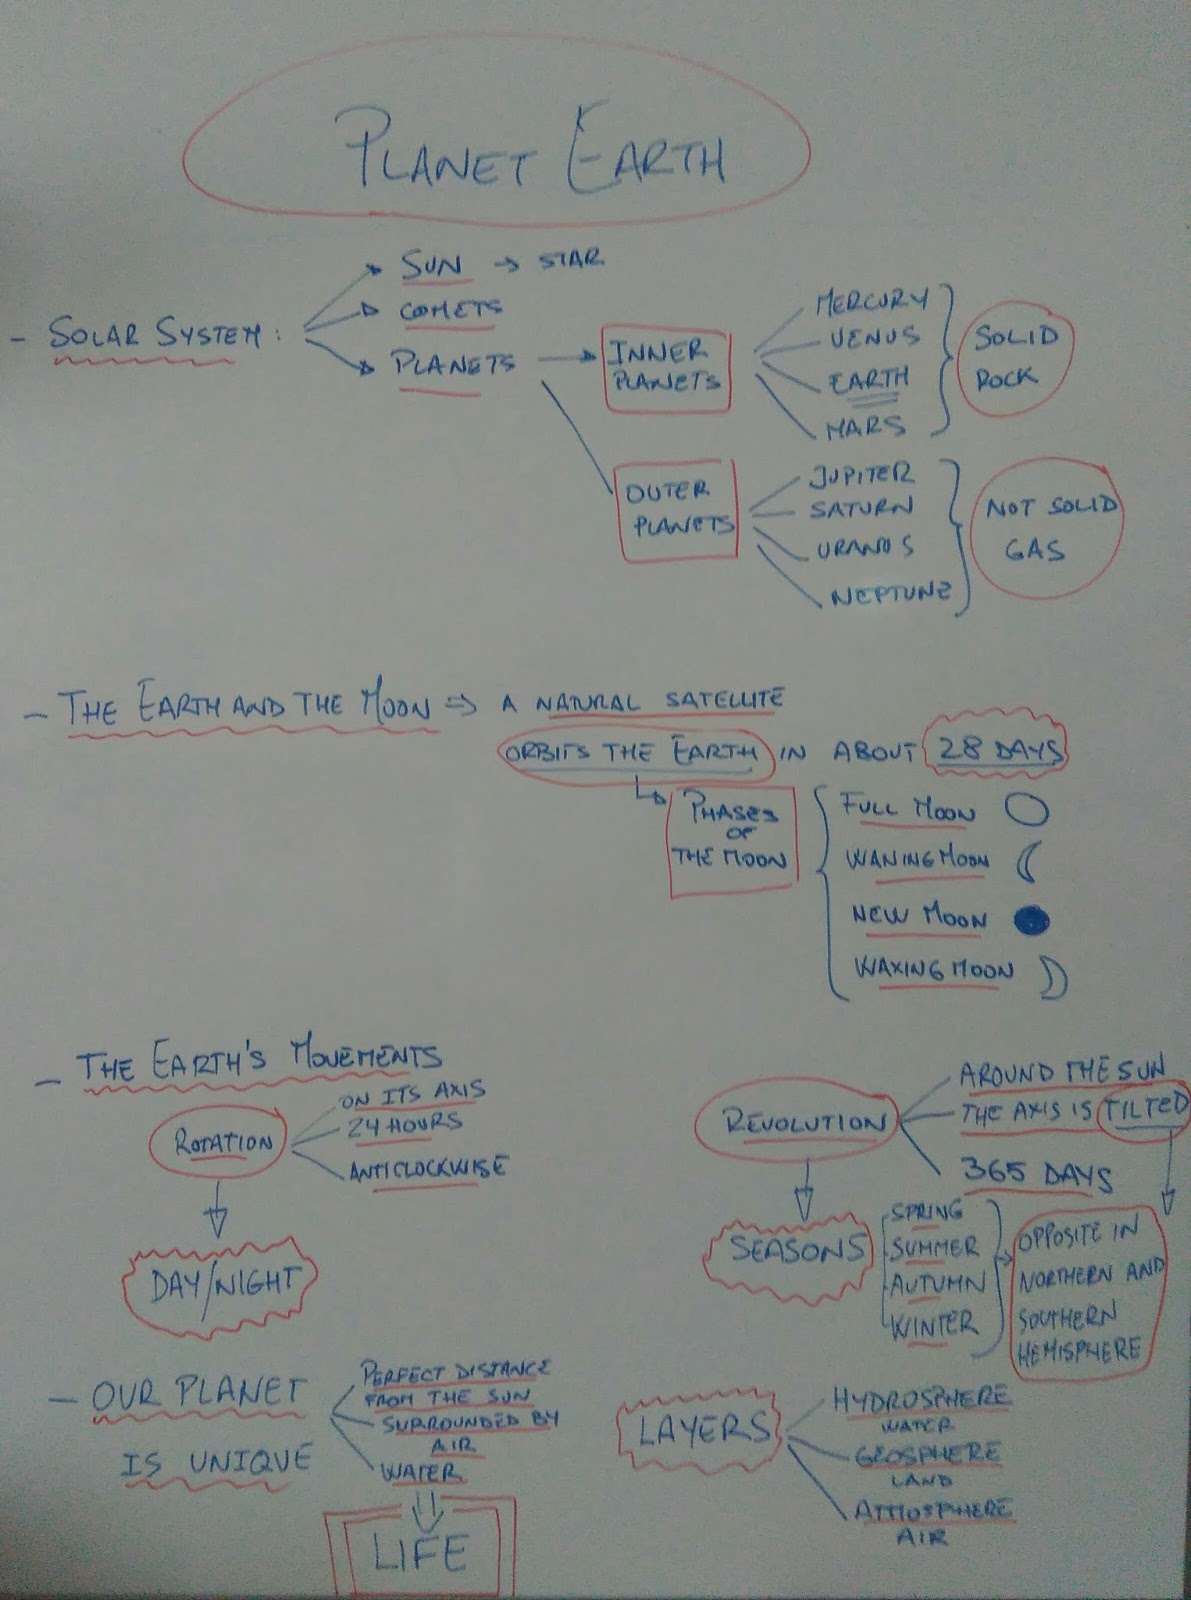 PLANET EARTH
- SOLAR SYSTEM:
SUN → STAR
COMETS
PLANETS
INNER
PLANETS
MERCURY
VENUS
EARTH
MARS
SOLID
ROCK
OUTER
PLANETS
JUPITER
SATURN
URANUS
NEPTUNE
NOT SOLID
GAS
- THE EARTH AND THE MOON ⇒ A NATURAL SATELLITE
ORBITS THE EARTH IN ABOUT 28 DAYS
PHASES
OF
THE MOON
FULL MOON
WANING MOON
NEW MOON
WAXING MOON
- THE EARTH'S MOVEMENTS
ROTATION
ON ITS AXIS
24 HOURS
ANTICLOCKWISE
DAY/NIGHT
REVOLUTION
AROUND THE SUN
THE AXIS IS TILTED
365 DAYS
SEASONS
SPRING
SUMMER
AUTUMN
WINTER
OPPOSITE IN
NORTHERN AND
SOUTHERN
HEMISPHERE
- OUR PLANET
IS UNIQUE
PERFECT DISTANCE
FROM THE SUN
SURROUNDED BY
AIR
WATER
LIFE
LAYERS
HYDROSPHERE
WATER
GEOSPHERE
LAND
ATMOSPHERE
AIR